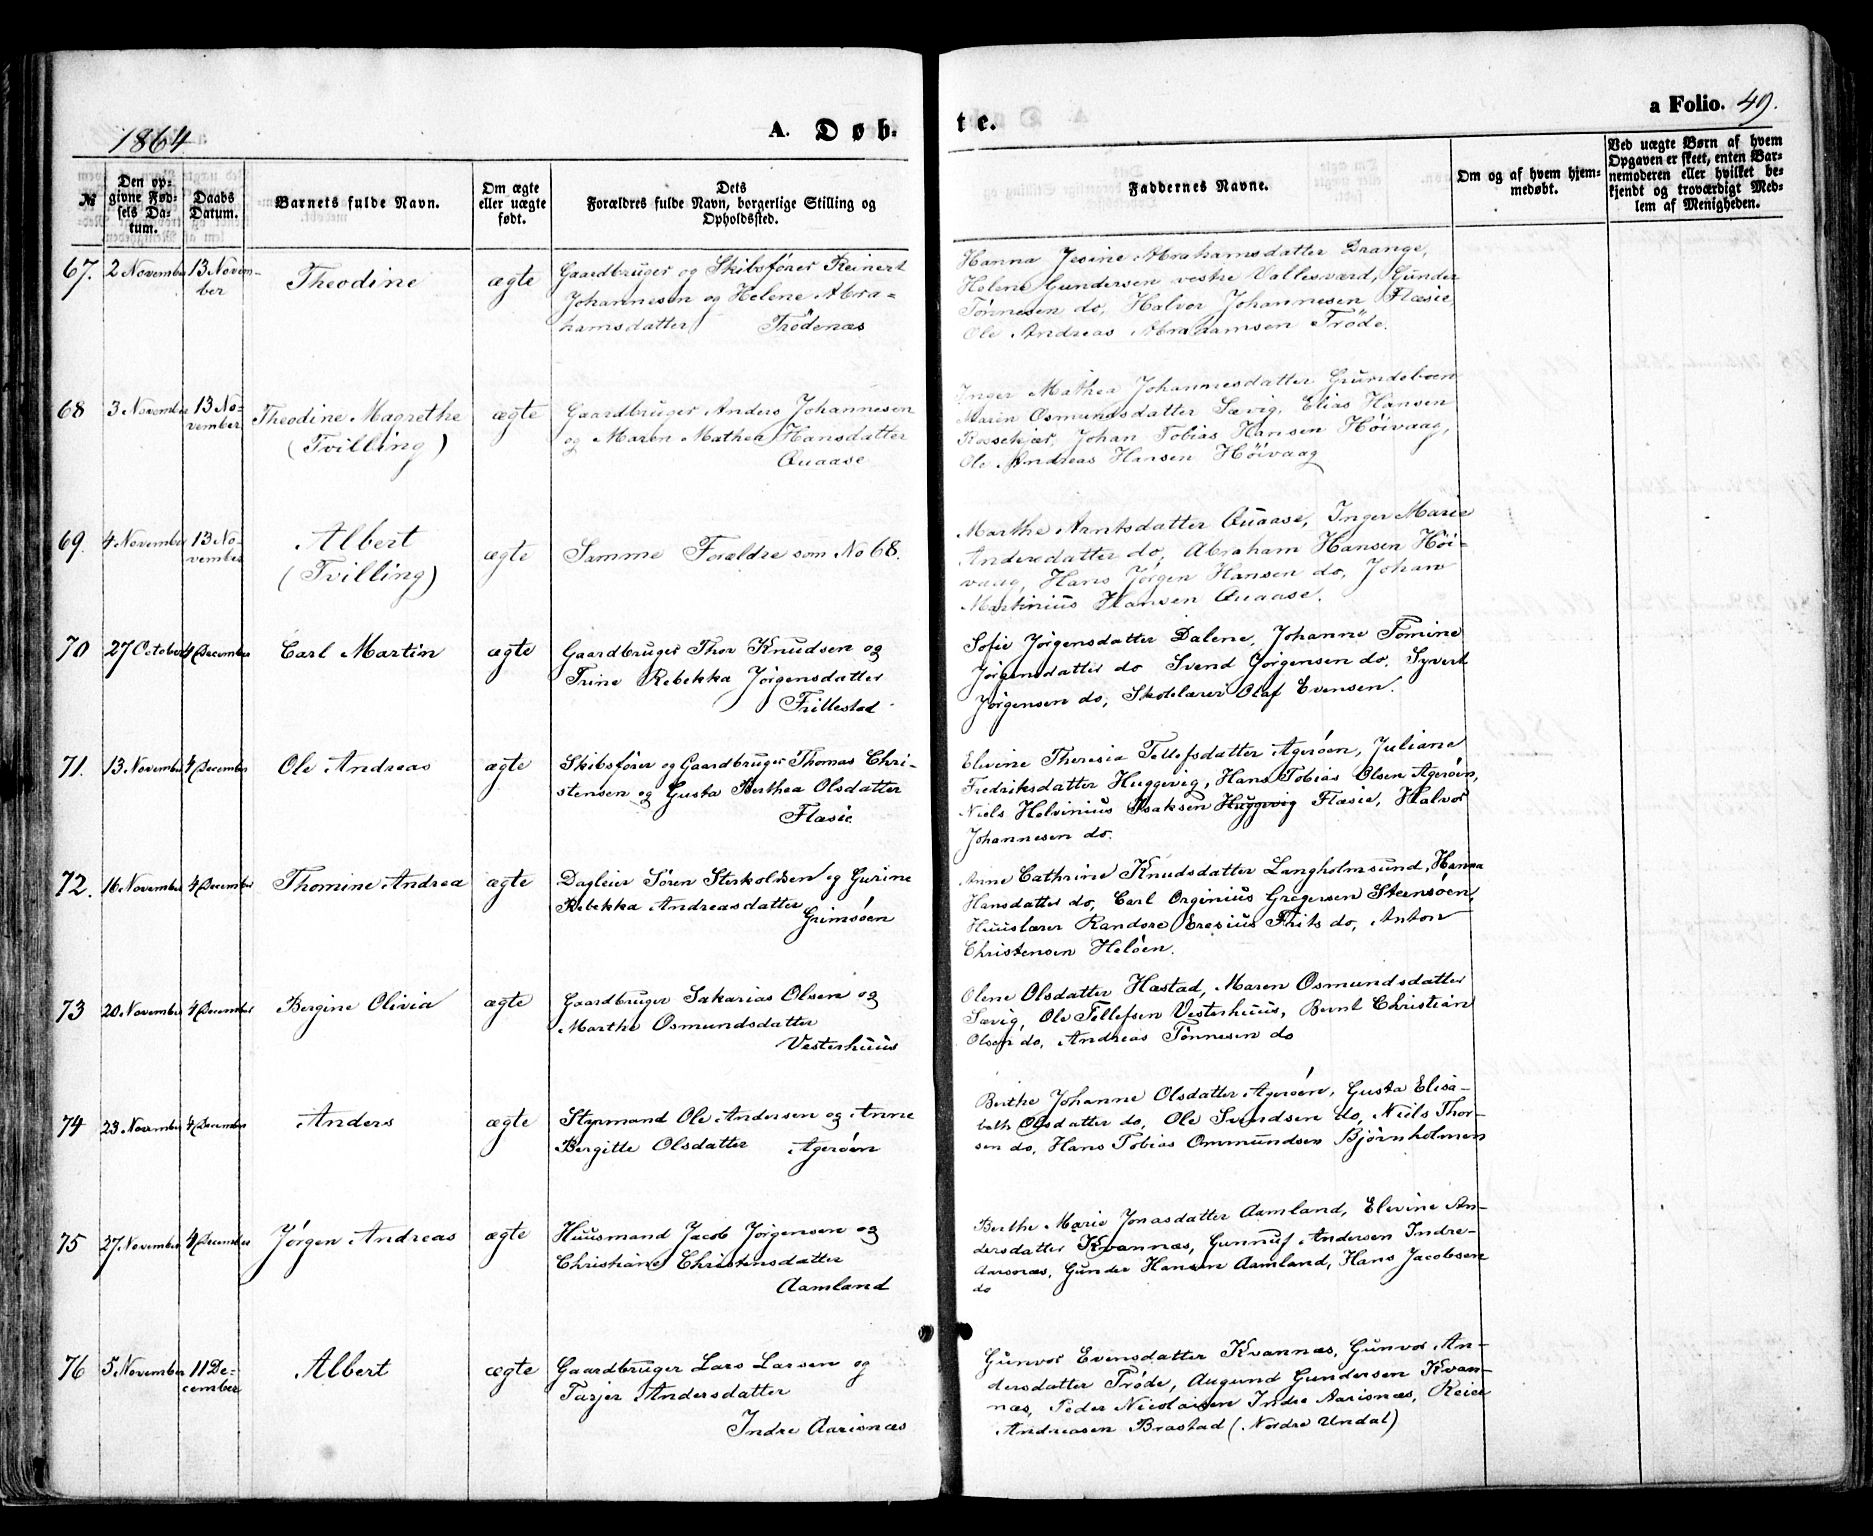 1864
A. Døb.
te.
a Folio. 49.
№
Den op-
givne Fød-
sels Da-
tum.
Daabs
Datum.
Barnets fulde Navn.
Om ægte
eller uægte
født.
Dets
Forældres fulde Navn, borgerlige Stilling og
Opholdssted.
Faddernes Navne.
Om og af hvem hjem-
medøbt.
Ved uægte Børn af hvem
Opgaven er skeet, enten Bar-
nemoderen eller hvilket be-
kjendt og troværdigt Med-
lem af Menigheden.
67. 2 November 13 Novem-
ber
Theodine
ægte
Gaardbruger og Skibsfører Reinert
Johannesen og Helene Abra-
hamsdatter Trødenæs
Hanna Jesine Abrahamsdatter Drange,
Helene Gundersen vestre Vallesværd, Gunder
Tønnesen do, Halvor Johannesen Flæsie
Ole Andreas Abrahamsen Trøde.
68 3 November 13 No-
vember
Theodine Magrethe
(Tvilling)
ægte
Gaardbruger Anders Johannesen
og Maren Mathea Hansdatter
Quaase
Inger Mathea Johannesdatter Grundeboen
Maren Osmundsdatter Sævig, Elias Hansen
Johan Tobias Hansen Høivaag,
Ole Andreas Hansen Høivaag
69. 4 November 13 No-
vember
Albert
(Tvilling)
ægte
Samme Forældre som No 68.
Marthe Arntsdatter Quaase, Inger Marie
Andersdatter do, Abraham Hansen Høi-
vaag, Hans Jørgen Hansen do, Johan
Martinius Hansen Quaase.
70 27 October 4 December
Carl Martin
ægte
Gaardbruger Thor Knudsen og
Trine Rebekka Jørgensdatter
Frillestad
Sofie Jørgensdatter Dalene, Johanne Tomine
Jørgensdatter do Svend Jørgensen do, Syvert
Jørgensen do, Skolelærer Olaf Evensen.
71. 13 November 4 December
Ole Andreas
ægte
Skibsfører og Gaardbruger Thomas Chri-
stensen og Gusta Berthea Olsdatter
Flæsie
Elevine Theresia Tellefsdatter Agerøen, Juliane
Fredriksdatter Huggevig, Hans Tobias Olsen Agerøen,
Niels Helvinius Isaksen Huggevig Flæsie, Halvor
Johannesen do.
72. 16 November 4 December
Thomine Andrea
ægte
Dagleier Søren Sterkoldsen og Gurine
Rebekka Andreasdatter
Grimsøen
Anne Cathrine Knudsdatter Langholmsund, Hanna
Hansdatter do, Carl Orginius Gregersen Steensøen,
Huuslærer Randore Eresius Frits do, Anton
Christensen Heløen.
73 20 November 4 December
Bergine Olivia
ægte
Gaardbruger Sakarias Olsen og
Marthe Osmundsdatter
Vesterhuus
Olene Olsdatter Hæstad, Maren Osmundsdatter
Sævig, Ole Tellefsen Vesterhuus, Bernt Christian
Olsen do, Andreas Tønnesen do
74 23 November 4 December
Anders
ægte
Styrmand Ole Andersen og Anne
Bergitte Olsdatter Agerøen
Berthe Johanne Olsdatter Agerøen, Gusta Elisa-
beth Olsdatter do, Ole Svendsen do, Niels Thor-
sen do, Hans Tobias Ommundsen Bjørnholmen
75 27 November 4 December
Jørgen Andreas
ægte
Huusmand Jacob Jørgensen og
Christiane Christensdatter
Aamland
Berthe Marie Jonasdatter Aamland, Elevine An-
dersdatter Kvannæs, Gunnuf Andersen Indre-
Aarsnæs, Gunder Hansen Aamland, Hans Jacobsen
do
76 5 November 11 De-
cember
Albert
ægte
Gaardbruger Lars Larsen og
Tarjer Andersdatter
Indre Aarisnæs
Gunvor Evensdatter Kvannæs, Gunvor An-
dersdatter Trøde, Augund Gundersen Kvan-
næs, Peder Nicolaisen Indre Aarisnæs, Reier
Andreasen Brastad (Nordre Undal)